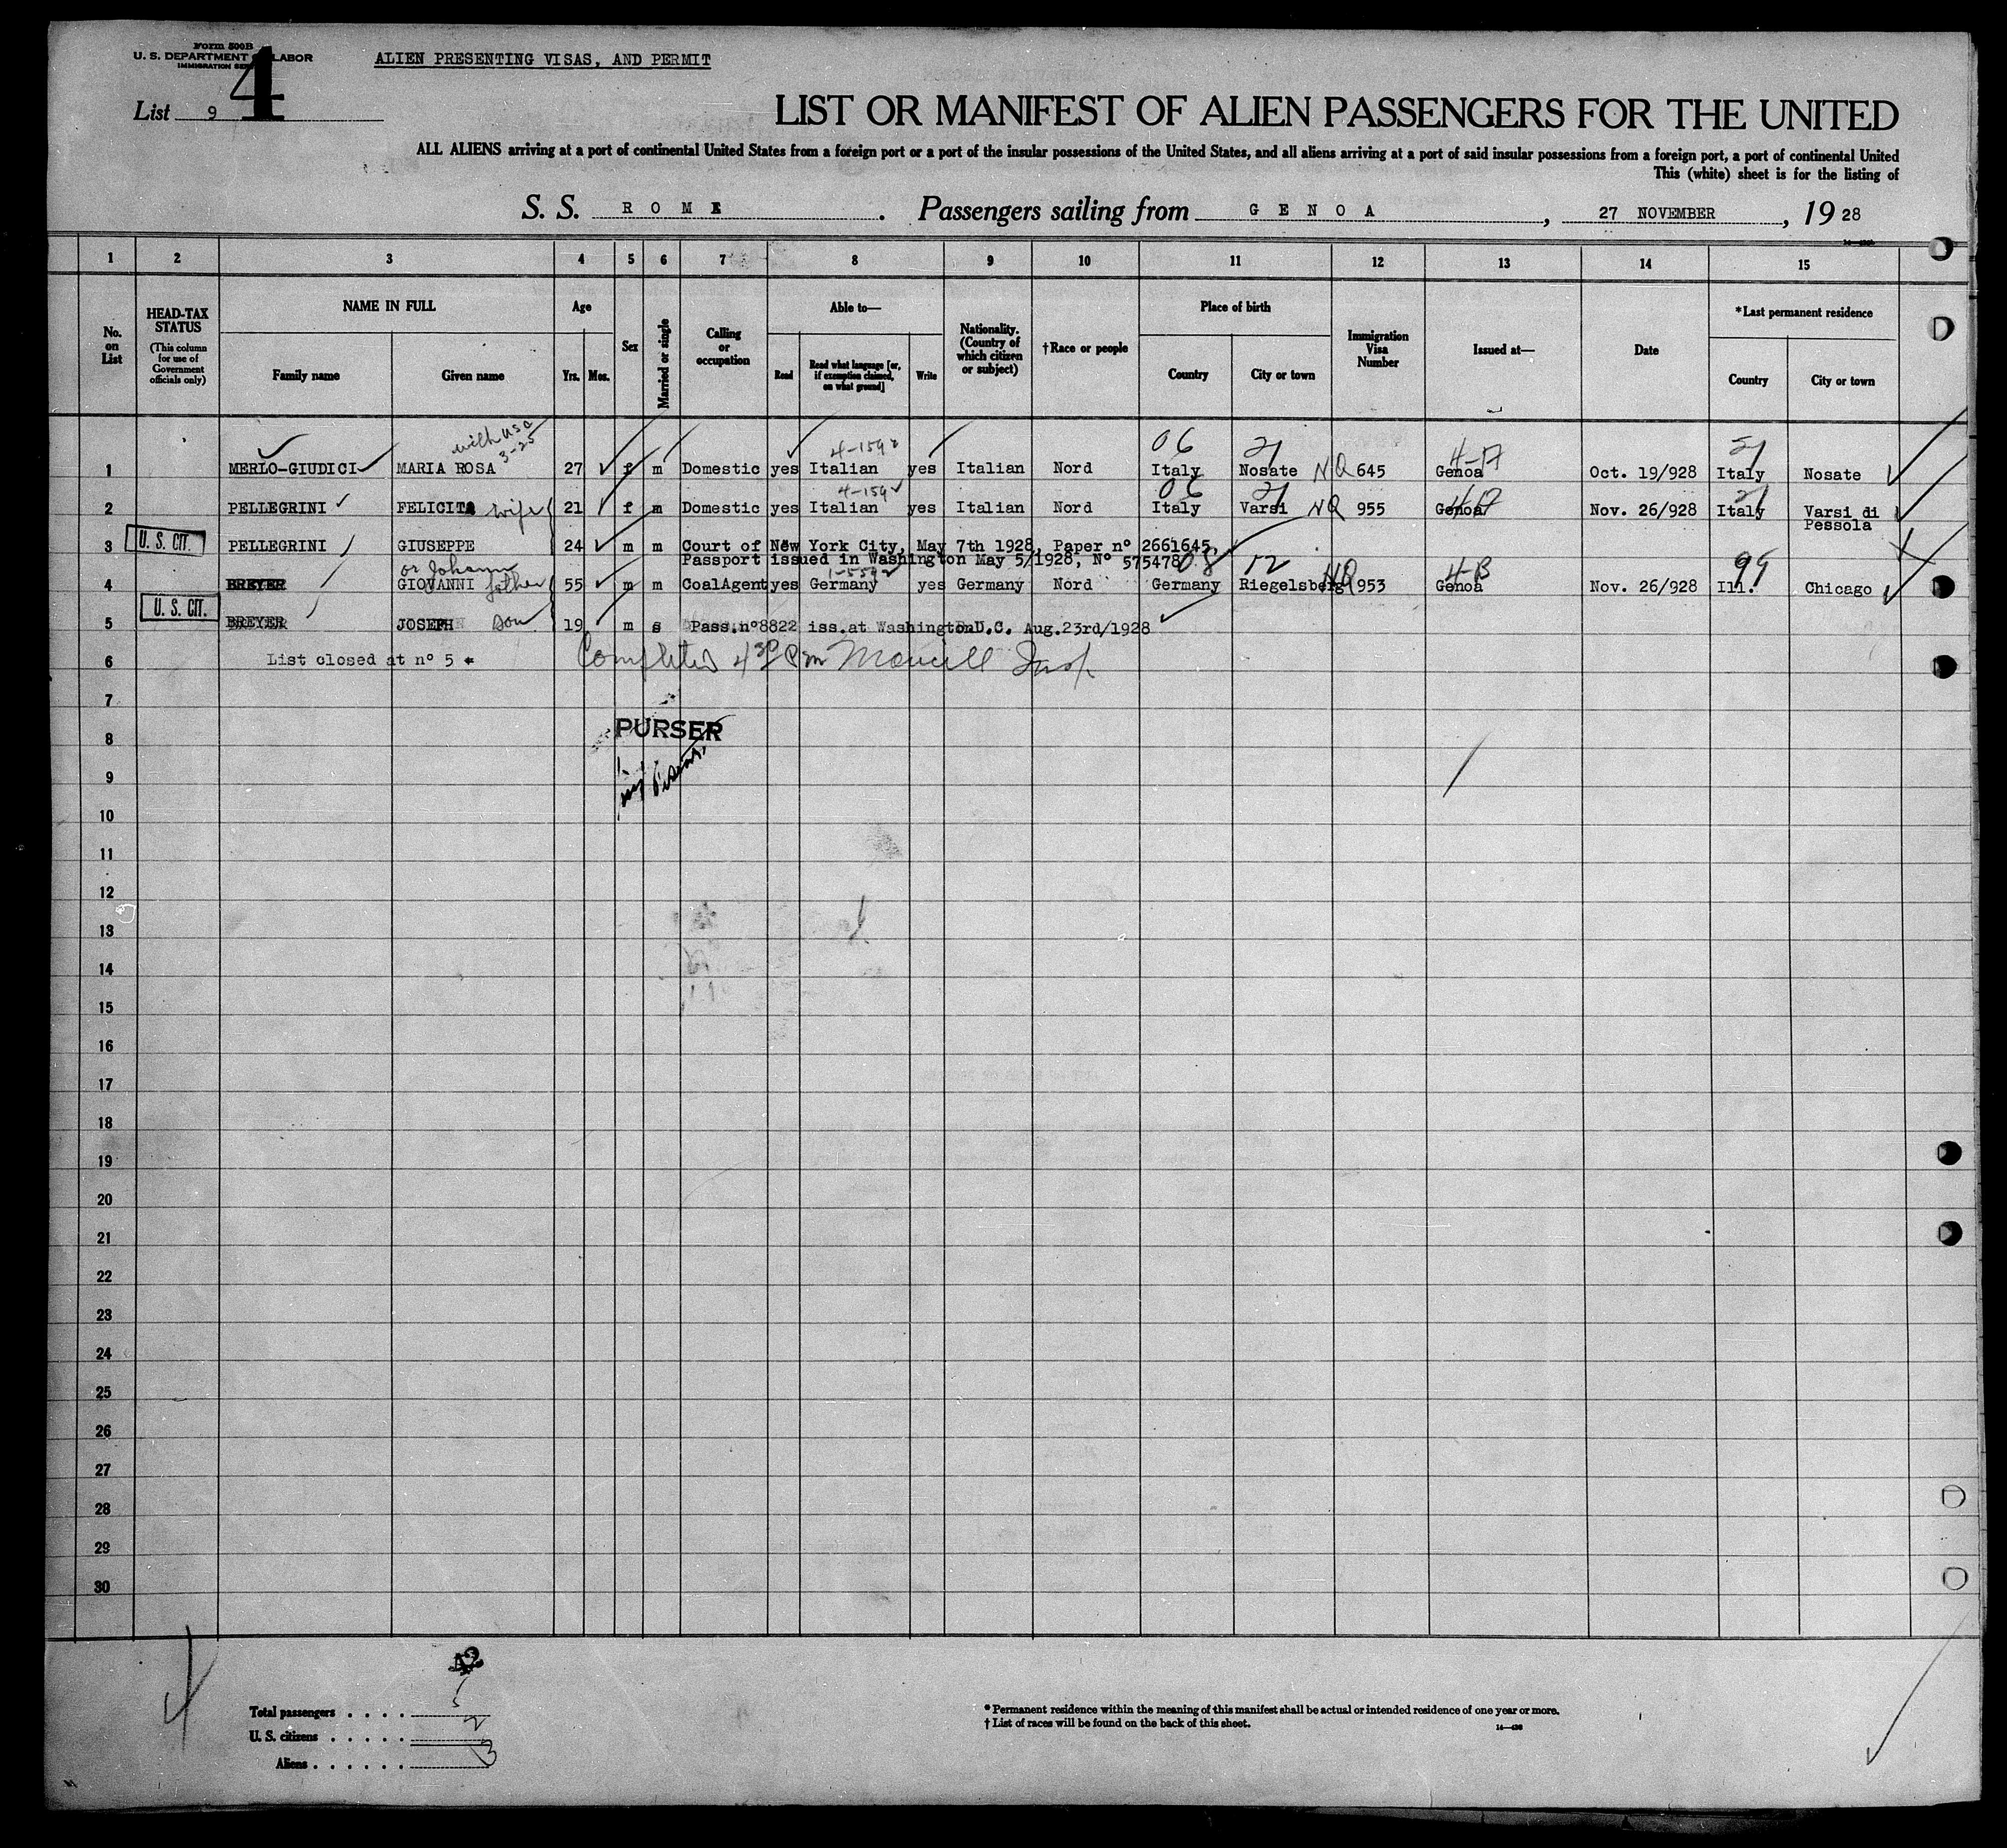 Form 500B
U. S. DEPARTMENT OF LABOR
IMMIGRATION SERVICE
4
ALIEN PRESENTING VISAS, AND PERMIT
List 9
LIST OR MANIFEST OF ALIEN PASSENGERS FOR THE UNITED
ALL ALIENS arriving at a port of continental United States from a foreign port or a port of the insular possessions of the United States, and all aliens arriving at a port of said insular possessions from a foreign port, a port of continental United
This (white) sheet is for the listing of
S. S. ROME. Passengers sailing from GENOA, 27 NOVEMBER, 1928
1 2 3 4 5 6 7 8 9 10 11 12 13 14 15
No. on List
HEAD-TAX STATUS (This column for use of Government officials only)
NAME IN FULL
Family name
Given name
Age
Yrs. Mos.
Sex
Married or single
Calling or occupation
Able to—
Read
Read what language [or, if exemption claimed, on what ground]
Write
Nationality. (Country of which citizen or subject)
†Race or people
Place of birth
Country
City or town
Immigration Visa Number
Issued at—
Date
*Last permanent residence
Country
City or town
with USC 3-25
4-159 06 21 4-17 21
1 MERLO-GIUDICI MARIA ROSA 27 f m Domestic yes Italian yes Italian Nord Italy Nosate NQ 645 Genoa Oct. 19/928 Italy Nosate
4-159 06 21 4-17 21
2 PELLEGRINI FELICITA wife 21 f m Domestic yes Italian yes Italian Nord Italy Varsi NQ 955 Genoa Nov. 26/928 Italy Varsi di Pessola
U. S. CIT.
3 PELLEGRINI GIUSEPPE 24 m m Court of New York City, May 7th 1928, Paper n° 2661645,
Passport issued in Washington May 5/1928, N° 575478
or Johann 1-559 08 12 4-B 99
4 BREYER GIOVANNI father 55 m m CoalAgent yes Germany yes Germany Nord Germany Riegelsberg NQ 953 Genoa Nov. 26/928 Ill. Chicago
U. S. CIT.
5 BREYER JOSEPH Son 19 m s Pass.n°8822 iss.at Washington D.C. Aug.23rd/1928
6 List closed at n° 5 Completed 4 30 Pm Insp.
7
PURSER
8
9
10
11
12
13
14
15
16
17
18
19
20
21
22
23
24
25
26
27
28
29
30
Total passengers . . . . 5
U. S. citizens . . . . . 2
Aliens . . . . . . 3
* Permanent residence within the meaning of this manifest shall be actual or intended residence of one year or more.
† List of races will be found on the back of this sheet.